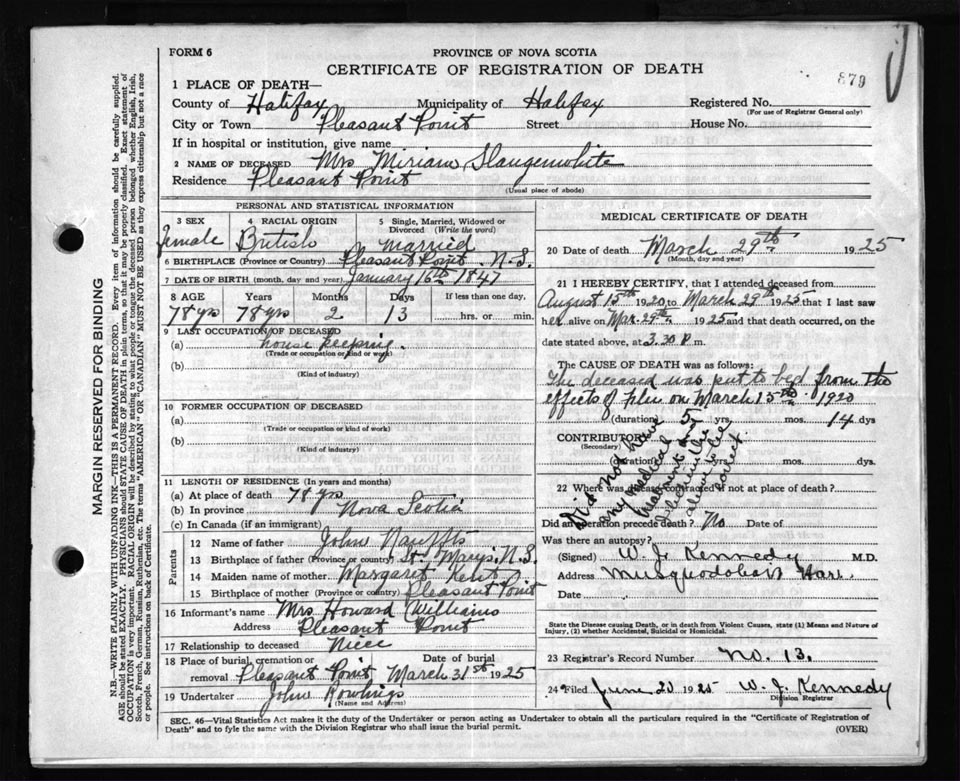 879
FORM 6
PROVINCE OF NOVA SCOTIA
CERTIFICATE OF REGISTRATION OF DEATH
1 PLACE OF DEATH—
County of Halifax Municipality of Halifax Registered No.
(For use of Registrar General only)
City or Town Pleasant Point Street House No.
If in hospital or institution, give name
2 NAME OF DECEASED Mrs Miriam Slaugenwhite
Residence Pleasant Point
(Usual place of abode)
PERSONAL AND STATISTICAL INFORMATION
3 SEX
4 RACIAL ORIGIN
5 Single, Married, Widowed or Divorced (Write the word)
Female British Married
6 BIRTHPLACE (Province or Country) Pleasant Point. N.S.
7 DATE OF BIRTH (month, day and year) January 16th 1847
8 AGE Years Months Days If less than one day,
78 yrs 78 yrs 2 13 hrs. or min.
9 LAST OCCUPATION OF DECEASED
(a) house keeping.
(Trade or occupation or kind or work)
(b)
(Kind of industry)
10 FORMER OCCUPATION OF DECEASED
(a)
(Trade or occupation or kind of work)
(b)
(Kind of industry)
11 LENGTH OF RESIDENCE (In years and months)
(a) At place of death 78 yrs
(b) In province Nova Scotia
(c) In Canada (if an immigrant)
Parents
12 Name of father John
13 Birthplace of father (Province or country) St. Marys. N.S.
14 Maiden name of mother Margaret Kent
15 Birthplace of mother (Province or country) Pleasant Point
16 Informant's name Mrs Howard Williams
Address Pleasant Point
17 Relationship to deceased Niece
18 Place of burial, cremation or removal Pleasant Point Date of burial March 31st 1925
19 Undertaker John Rowlings
(Name and Address)
MEDICAL CERTIFICATE OF DEATH
20 Date of death March 29th 1925
(Month, day and year)
21 I HEREBY CERTIFY, that I attended deceased from
August 15th 1920, to March 29th 1925 that I last saw
her alive on Mar. 29th 1925 and that death occurred, on
date stated above, at 3.30 P.m.
The CAUSE OF DEATH was as follows:
The deceased was put to bed from the
effects of flu on March 15th 1920
(duration) 5 yrs. mos. 14 dys
CONTRIBUTORY
(Secondary)
(duration) yrs. mos. dys.
22 Where was disease contracted if not at place of death?
Did not have
any medical
treatment
alive to
correct
Did an operation precede death? No Date of
Was there an autopsy?
(Signed) W. J. Kennedy M.D.
Address Musquodoboit Harb.
Date
State the Disease causing Death, or in death from Violent Causes, state (1) Means and Nature of
Injury, (2) whether Accidental, Suicidal or Homicidal.
23 Registrar's Record Number No. 13.
24 Filed June 20 1925 W. J. Kennedy
Division Registrar
SEC. 46—Vital Statistics Act makes it the duty of the Undertaker or person acting as Undertaker to obtain all the particulars required in the "Certificate of Registration of
Death" and to fyle the same with the Division Registrar who shall issue the burial permit.
(OVER)
MARGIN RESERVED FOR BINDING
N.B.—WRITE PLAINLY WITH UNFADING INK—THIS IS A PERMANENT RECORD. Every item of information should be carefully supplied.
AGE should be stated EXACTLY. PHYSICIANS should STATE CAUSE OF DEATH in plain terms, so that it may be properly classified. Exact statement of
OCCUPATION is very important. RACIAL ORIGIN will be described by stating to what people or tongue the deceased person belonged whether English, Irish,
Scotch, French, German, Russian, Ruthenian, etc. The terms "AMERICAN" OR "CANADIAN" MUST NOT BE USED as they express citizenship but not a race
or people. See instructions on back of Certificate.